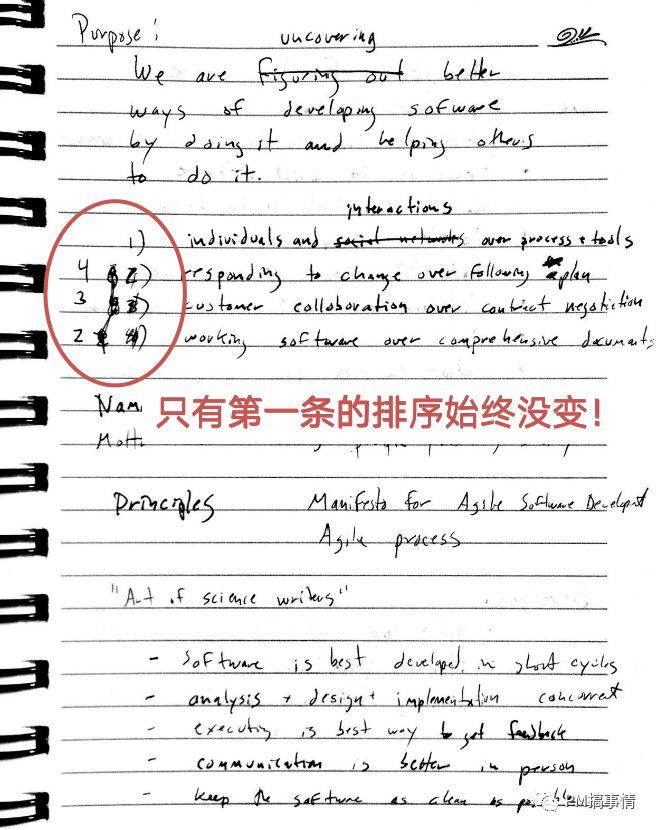 Purpose: uncovering
We are figuring out better
ways of developing sofware
by doing it and helping others
to do it.
interactions
1) individuals and social networks over process + tools
4 2) responding to change over following a plan
3 3) customer collaboration over contract negotiction
2 4) working software over comprehensive documents
Nam
只有第一条的排序始终没变!
Mott
Principles Manifesto for Agile Software Developmt
Agile process
"Art of science writers"
- software is best developed in short cycles
- analysis + design + implementation concurrent
- executing is best way to get feedback
- communication is better in person
- keep the software as clean as possible
PM搞事情